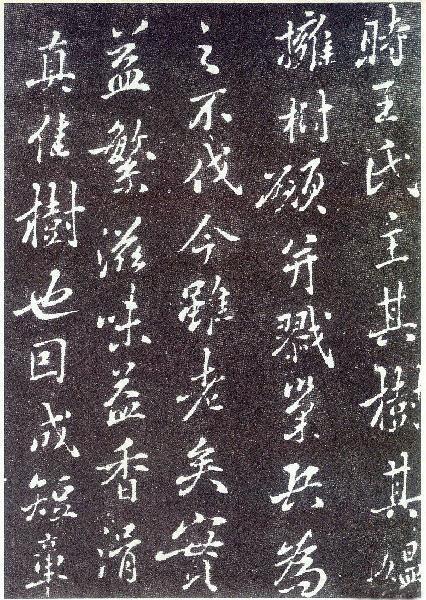 時王氏主其樹其媪
擁樹願并戮巢兵為
之不伐今雖老矣實
益繁滋味益香滑
真佳樹也因成短章